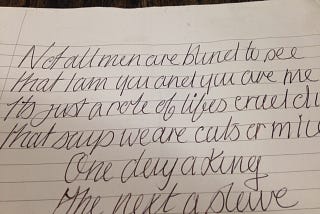 Not all men are blind to see
that I am you and you are me
Its just a role of lifes cruel
that says we are cats or
One day a King
The next a slave